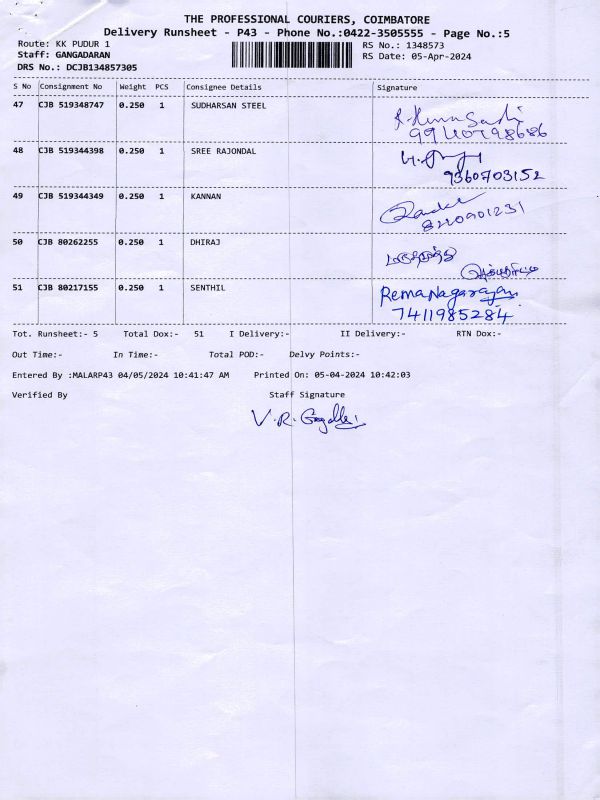 THE PROFESSIONAL COURIERS, COIMBATORE
Delivery Runsheet - P43 - Phone No.:0422-3505555 - Page No.:5
Route: KK PUDUR 1 RS No.: 1348573
Staff: GANGADARAN RS Date: 05-Apr-2024
DRS No.: DCJB134857305
S No Consignment No Weight PCS Consignee Details Signature
47 CJB 519348747 0.250 1 SUDHARSAN STEEL
48 CJB 519344398 0.250 1 SREE RAJONDAL
9360703152
49 CJB 519344349 0.250 1 KANNAN
8220901231
50 CJB 80262255 0.250 1 DHIRAJ
51 CJB 80217155 0.250 1 SENTHIL RemaNagarajan
7411985284
Tot. Runsheet:- 5 Total Dox:- 51 I Delivery:- II Delivery:- RTN Dox:-
Out Time:- In Time:- Total POD:- Delvy Points:-
Entered By :MALARP43 04/05/2024 10:41:47 AM Printed On: 05-04-2024 10:42:03
Verified By Staff Signature
V.R.